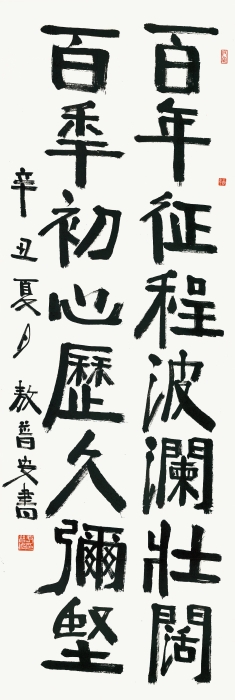 百年征程波瀾壯闊
百年初心歷久彌堅
辛丑夏月 敖普安書